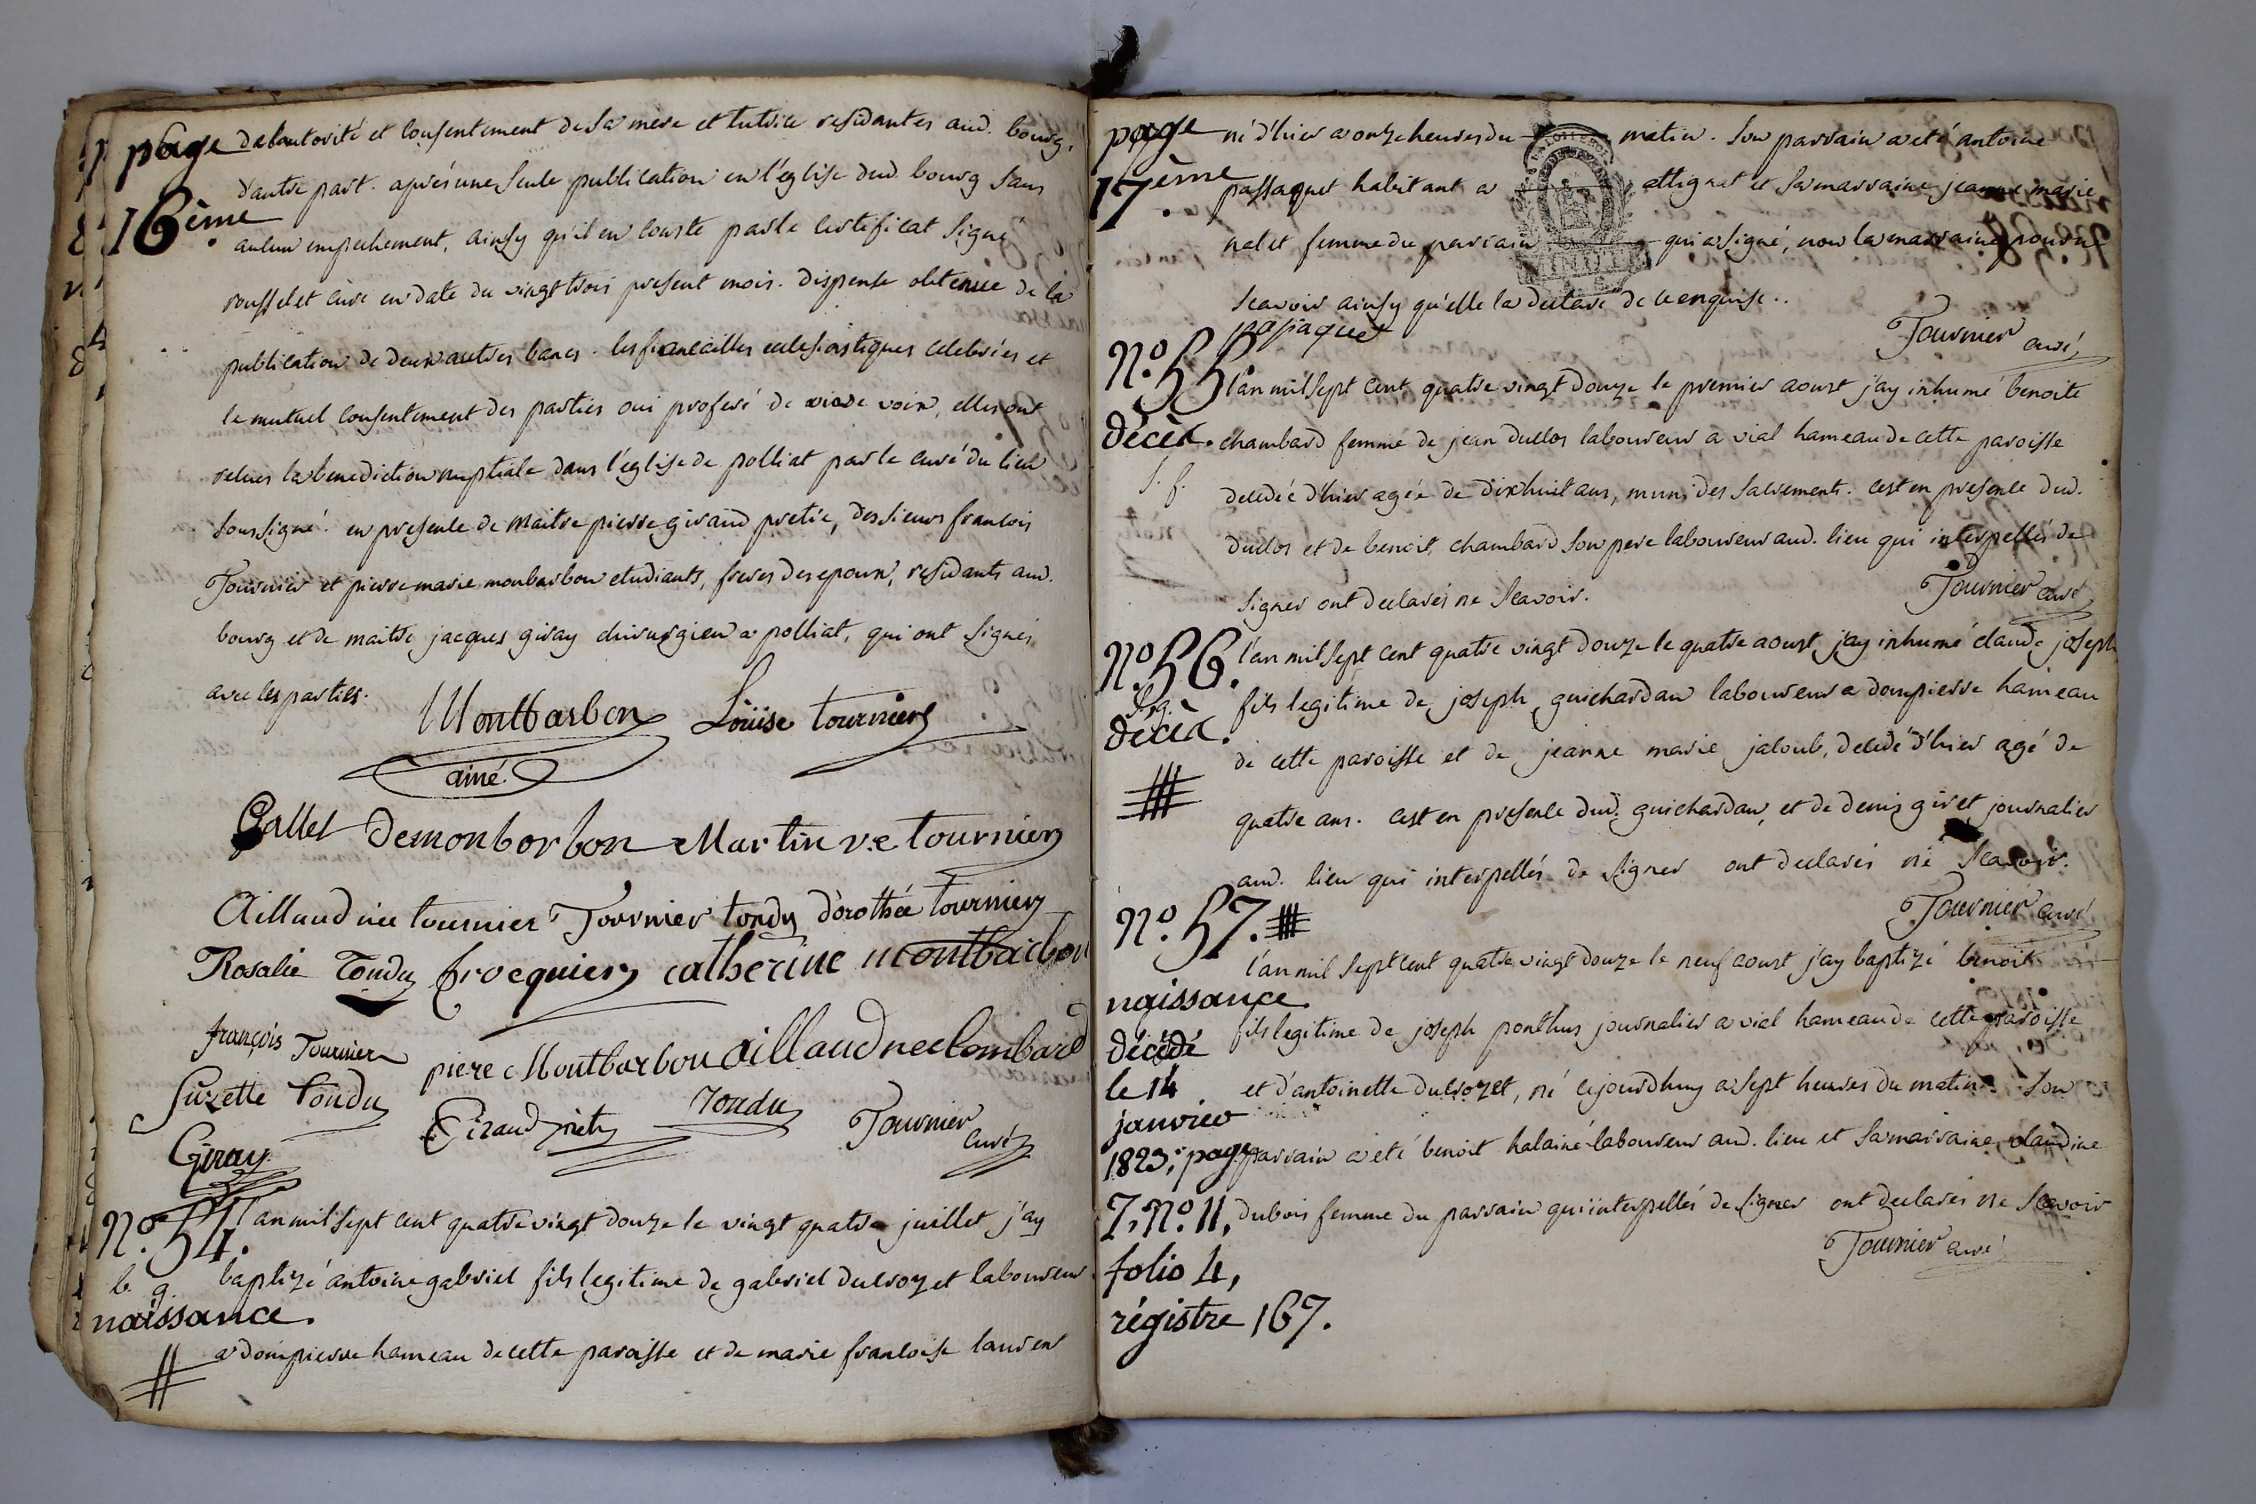 page 16ème
de l'autorité et consentement de sa mere et tutrice residantes aud. bourg,
d'autre part. après une seule publication en l'église dud. bourg sans
aucun empechement, ainsy qu'il en conste par le certificat signé
rousselet curé en date du vingt trois present mois. dispense obtenue de la
publication de deux autres bancs. les fiancailles eclesiastiques celebrées et
le mutuel consentement des parties oui proferé de vive voix, elles ont
recues la benediction nuptiale dans l'église de polliat par le curé du lieu
soussigné. en presence de maitre pierre giraud pretre, des sieurs francois
Tournier et pierre marie monbarbon etudiants, freres des epoux, residants aud.
bourg et de maitre jacques giray chirurgien a polliat, qui ont signés
avec les parties.
Montbarbon Loüise tournier
ainé.
Gallet Demonborbon Martin v.e tournier
Aillaud née tournier Tournier tondu dorothée tournier
Rosalie Tondu frocquier catherine montbarbon
françois Tournier piere Montbarbon aillaud nee lombard
Suzette tondu Giraud pretr Tondu Tournier curé
Giray
No. 54. l'an mil sept cent quatre vingt douze le vingt quatre juillet j'ay
b. g. baptizé antoine gabriel fils legitime de gabriel ducrozet laboureur
naissance.
a dompierre hameau de cette paroisse et de marie francoise laurent
page 17ème
né d'hier a onze heures du matin. son parrain a eté antoine
passaquet habitant a attignat et sa marraine jeanne marie
nalet femme du parrain qui a signé, non la marraine pour ne
scavoir ainsy qu'elle la declaré de ce enquise.
pasaquet
Tournier curé
No. 55. l'an mil sept cent quatre vingt douze le premier aoust j'ay inhumé benoite
décès. chambard femme de jean duclos laboureur a vial hameau de cette paroisse
s. f. decedée d'hier agée de dixhuit ans, muni des sacrements. cest en presence dud.
duclos et de benoit chambard son pere laboureur aud. lieu qui interpellés de
signer ont declarés ne scavoir.
Tournier curé
No. 56. l'an mil sept cent quatre vingt douze le quatre aoust j'ay inhumé claude joseph
s. g. fils legitime de joseph guichardan laboureur a dompierre hameau
décès. de cette paroisse et de jeanne marie jaloub, decedé d'hier agé de
quatre ans. cest en presence dud. guichardan, et de denis giret journalier
aud. lieu qui interpellés de signer ont declarés ne scavoir.
Tournier curé
No. 57.
l'an mil sept cent quatre vingt douze le neuf aoust j'ay baptizé benoit
naissance
fils legitime de joseph ponthus journalier a vial hameau de cette paroisse
décédé
le 14 et d'antoinette ducrozet, né cejourdhuy a sept heures du matin. son
janvier
1823, page parrain a eté benoit halainé laboureur aud. lieu et sa marraine claudine
7, No. 11, dubois femme du parrain qui interpellés de signer ont declarés ne scavoir
Tournier curé
folio 4,
régistre 167.